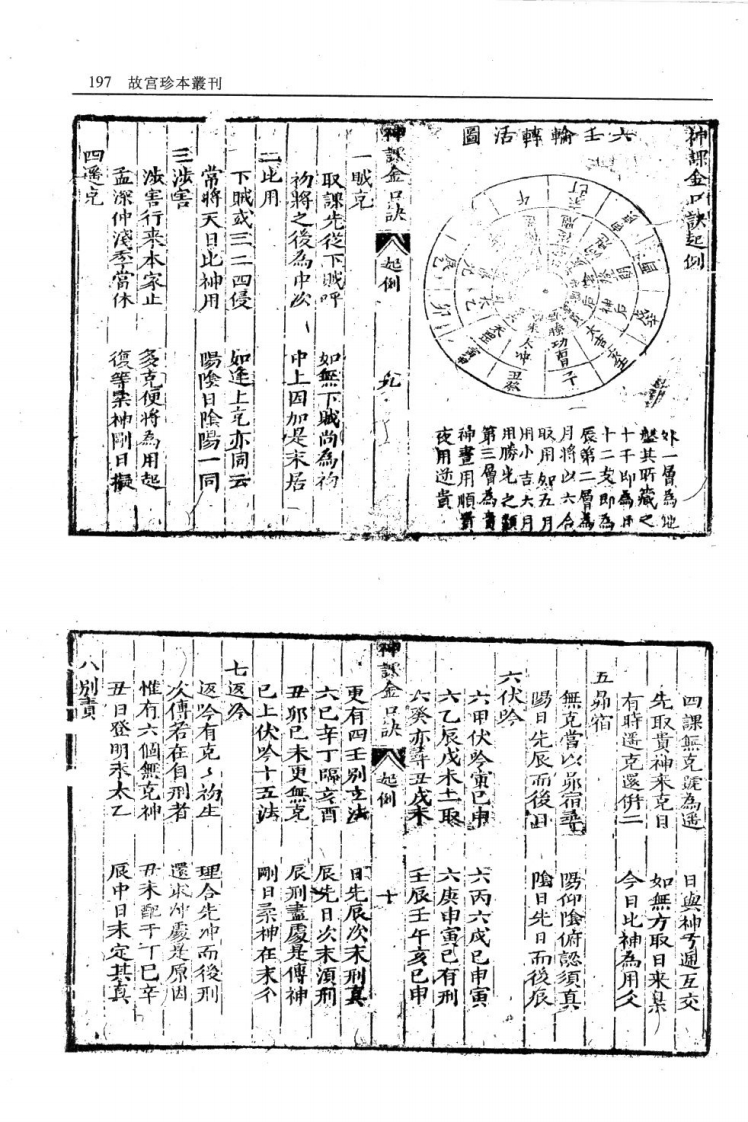 197 故宮珍本叢刊
神課金口訣起例
六壬輪轉活圖
外一層為地
盤其所藏之
十干即為
十二支即為
辰第二層為
月將凶六合
取用如五月
用小吉六月
用勝光之類
第三層為貴
神晝用順貴
夜用逆貴
神課金口訣
起例
九
一賊克
取課先從下賊呼 如無下賊尚為初
初將之後為中次 中上因加是末居
二比用
下賊或三二四侵 如逢上克亦同云
常將天日比神用 陽陰日陰陽一同
三涉害
涉害行來本家止 多克便將為用起
孟深仲淺季當休 復等柔神剛日擬
四遙克
四課無克號為遙 日與神兮遞互交
先取貴神來克日 如無方取日來
有時遙克還併二 今日比神為用爻
五昴宿
無克當以昴宿 陽仰陰俯認須真
陽日先辰而後日 陰日先日而後辰
六伏吟
六甲伏吟寅巳申 六丙六戊巳申寅
六乙辰戌未土取 六庚申寅巳有刑
六癸亦尋丑戌未 壬辰壬午亥巳申
神課金口訣
起例
十
更有四壬別立法 日先辰次末刑真
六巳辛丁臨亥酉 辰先日次末須刑
丑卯巳未更無克 辰刑盡處是傳神
已上伏吟十五法 剛日柔神在末分
七返吟
返吟有克克初生 理合先冲而後刑
次傳若在自刑者 還求冲處是原因
惟有六個無克神 丑未配于丁巳辛
丑日登明未太乙 辰中日末定其真
八別責